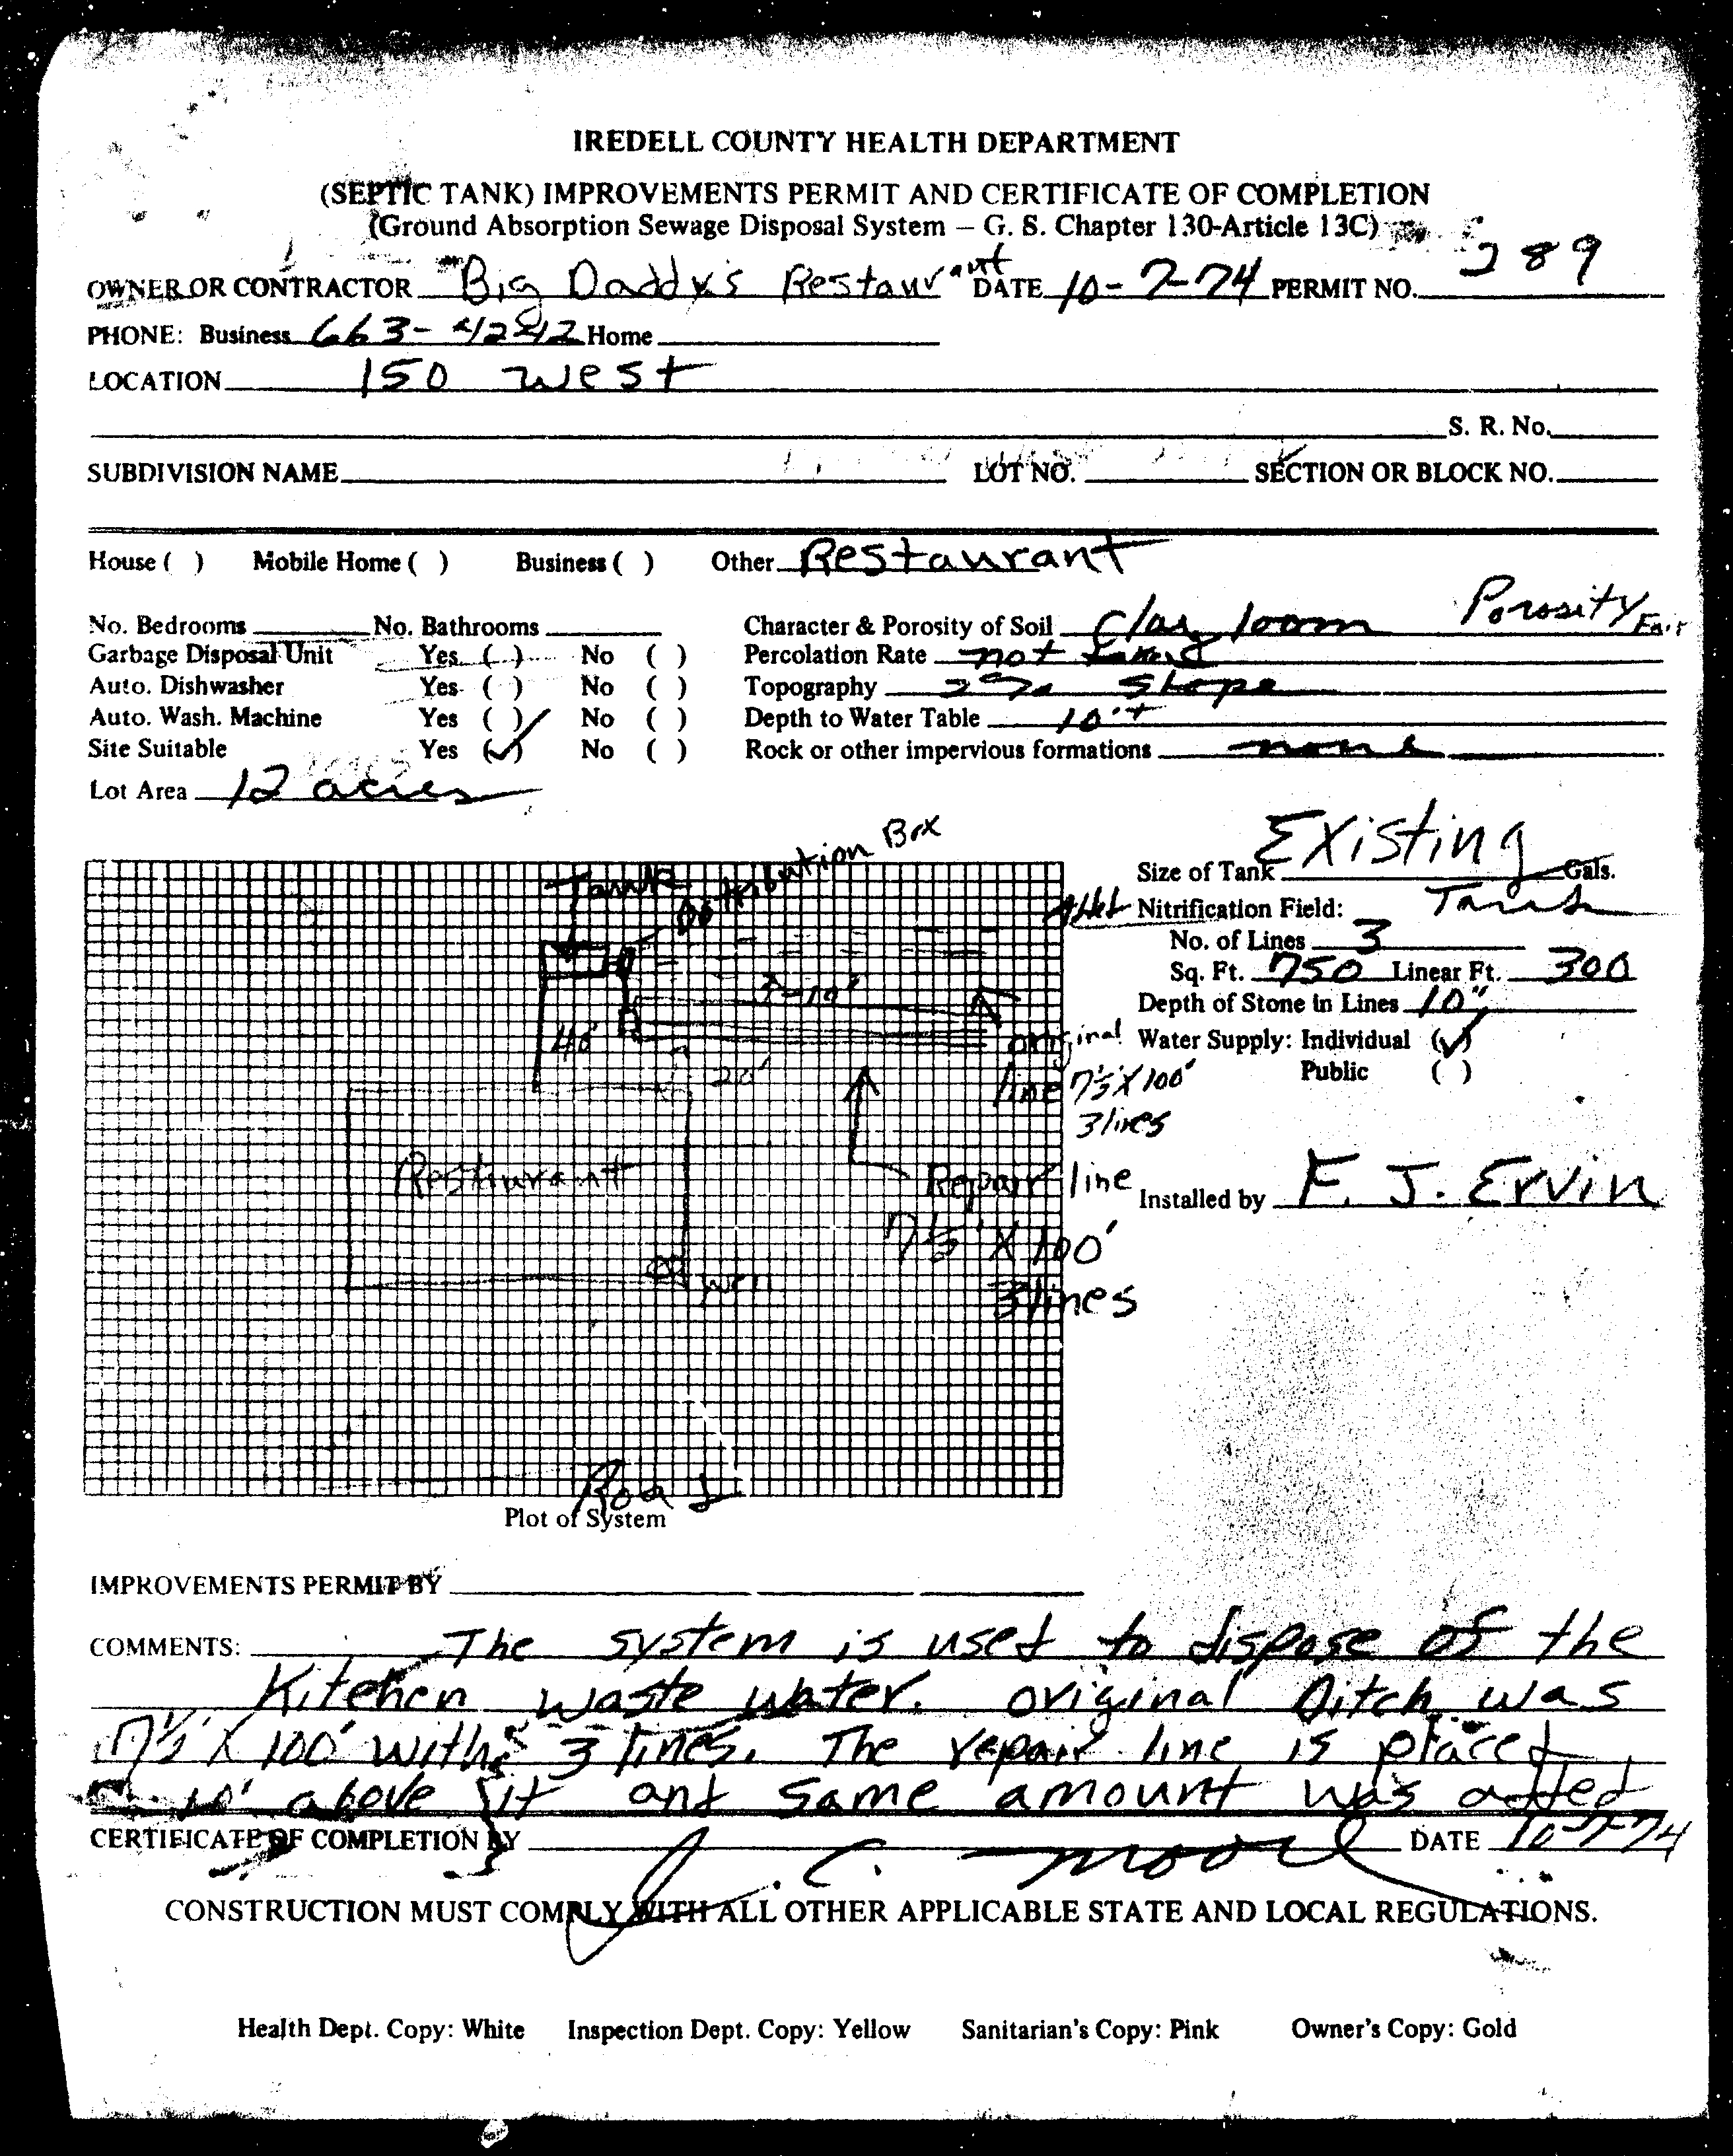 IREDELL COUNTY HEALTH DEPARTMENT
(SEPTIC TANK) IMPROVEMENTS PERMIT AND CERTIFICATE OF COMPLETION
(Ground Absorption Sewage Disposal System – G. S. Chapter 130-Article 13C)
OWNER OR CONTRACTOR Big Daddy's Restaurant DATE 10-7-74 PERMIT NO. 289
PHONE: Business 663-4242 Home
LOCATION 150 West
S. R. No.
SUBDIVISION NAME LOT NO. SECTION OR BLOCK NO.
House ( ) Mobile Home ( ) Business ( ) Other Restaurant
No. Bedrooms No. Bathrooms Character & Porosity of Soil Clay loom Porosity Fair
Garbage Disposal Unit Yes ( ) No ( ) Percolation Rate not taked
Auto. Dishwasher Yes ( ) No ( ) Topography 2% Slope
Auto. Wash. Machine Yes ( ) No ( ) Depth to Water Table 10'+
Site Suitable Yes (✓) No ( ) Rock or other impervious formations none
Lot Area 12 acres
Size of Tank Existing Gals.
Tank
Nitrification Field:
No. of Lines 3
Sq. Ft. 750 Linear Ft. 300
Depth of Stone in Lines 10"
Water Supply: Individual (✓)
Public ( )
Installed by F. J. Ervin
Tank
Distribution Box
40'
20'
original
line 7½ X 100'
3 lines
Restaurant
Repair line
7½' X 100'
3 lines
Well
Road
Plot of System
IMPROVEMENTS PERMIT BY
COMMENTS: The system is used to dispose of the
Kitchen waste water. original Ditch was
7½' X 100' with 3 lines. The repair line is placed
10' above it and same amount was added
CERTIFICATE OF COMPLETION BY J. C. Moore DATE 10-7-74
CONSTRUCTION MUST COMPLY WITH ALL OTHER APPLICABLE STATE AND LOCAL REGULATIONS.
Health Dept. Copy: White Inspection Dept. Copy: Yellow Sanitarian's Copy: Pink Owner's Copy: Gold